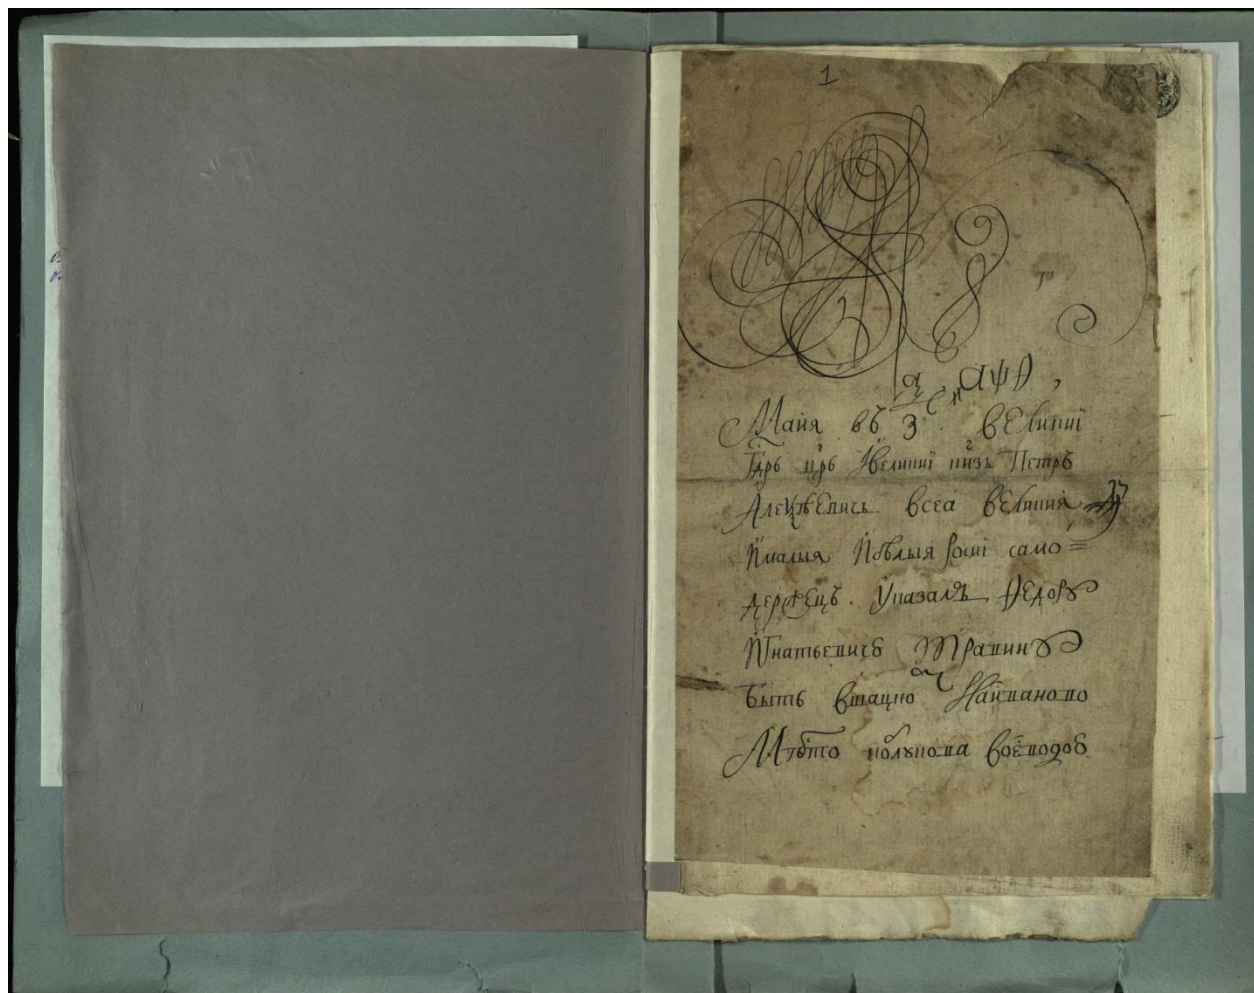 1
҂АѰѲ
Майя въ З. великиї
Гдрь црь Ївеликиї кнзь Петръ
Алеѯѣевичь всеа великия
Ималыя Ибѣлыя росиї само=
держецъ. Указалъ Ѳедору
Игнатьевичю Травину
Быть вшацко Наиваново
Мѣсто воеводою